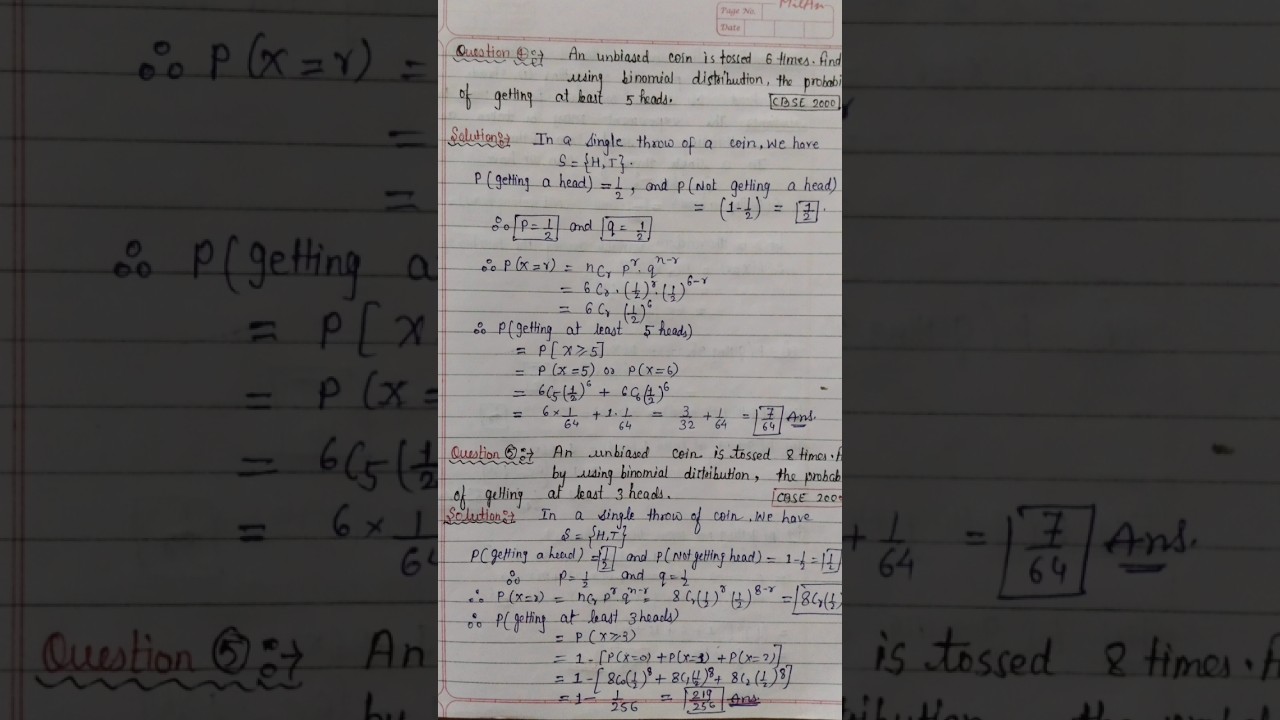 Page No.
Date
Milan
Question ④:→ An unbiased coin is tossed 6 times. Find
using binomial distribution, the probabi
of getting at least 5 heads. [CBSE 2000]
Solution:→ In a single throw of a coin, we have
S = {H,T}.
P(getting a head) = 1/2, and P(Not getting a head)
= (1-1/2) = 1/2.
∴ P = 1/2 and q = 1/2
∴ P(x=r) = nCr p^r. q^n-r
= 6Cr. (1/2)^r. (1/2)^6-r
= 6Cr (1/2)^6
∴ P(getting at least 5 heads)
= P[x≥5]
= P(x=5) or P(x=6)
= 6C5(1/2)^6 + 6C6(1/2)^6
= 6×1/64 + 1.1/64 = 3/32 + 1/64 = 7/64 Ans.
Question ⑤:→ An unbiased coin is tossed 8 times. F
by using binomial distribution, the probab
of getting at least 3 heads. [CBSE 200
Solution:→ In a single throw of coin, we have
S = {H,T}
P(getting a head) = 1/2 and P(Not getting head) = 1-1/2 = 1/2
∴ P = 1/2 and q = 1/2
∴ P(x=r) = nCr p^r q^n-r = 8Cr(1/2)^r (1/2)^8-r = 8Cr(1/2)
∴ P(getting at least 3 heads)
= P(x≥3)
= 1-[P(x=0) + P(x=1) + P(x=2)]
= 1-[8C0(1/2)^8 + 8C1(1/2)^8 + 8C2(1/2)^8]
= 1- 1/256 = 219/256 Ans.
∴ P(x=r) =
=
=
∴ P(getting a
= P[x
= P(x=
= 6C5(1/2
= 6×1/64
+ 1/64 = 7/64 Ans.
Question ⑤:→ An
is tossed 8 times.